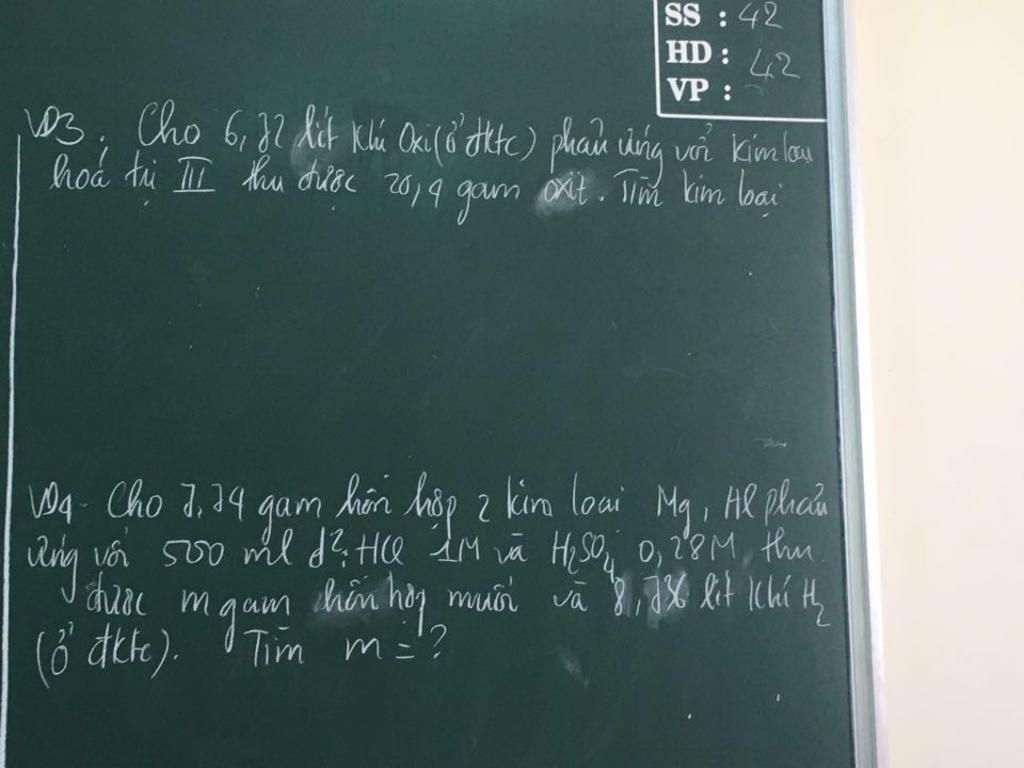 SS : 42
HD : 42
VP :
VD3. Cho 6,72 lít khí Oxi (ở đktc) phản ứng với kim loại
hoá trị III thu được 20,4 gam oxit. Tìm kim loại
VD4. Cho 7,74 gam hỗn hợp 2 kim loại Mg, Al phản
ứng với 500 ml d² HCl 1M và H₂SO₄ 0,28M thu
được m gam hỗn hợp muối và 8,736 lít khí H₂
(ở đktc). Tìm m = ?